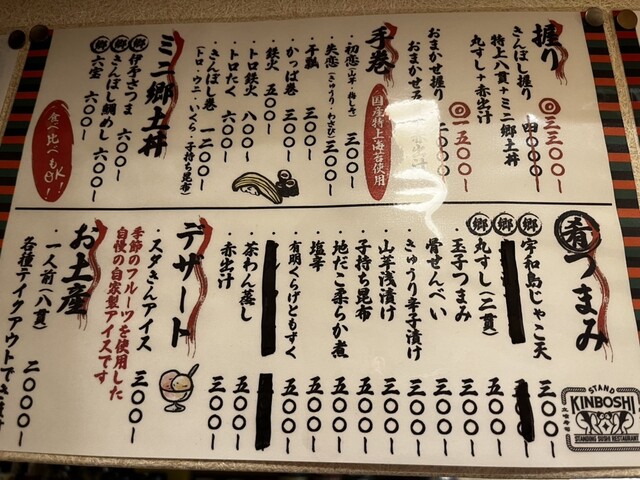 握り
きんぼし握り
◎三三〇〇
特上八貫+ミニ郷土丼
丸すし+赤出汁
四〇〇〇〜
おまかせ握り
◎一五〇〇〜
おまかせ五
赤出汁
二〇〇〇〜
手巻
国産特上海苔使用
・初恋(山芋・梅しそ) 三〇〇〜
・失恋(きゅうり・わさび) 三〇〇〜
・干瓢 三〇〇〜
・かっぱ巻 三〇〇〜
・鉄火 五〇〇〜
・トロ鉄火 八〇〇〜
・トロたく 六〇〇〜
・きんぼし巻 一二〇〇〜
(トロ・ウニ・いくら・子持ち昆布)
ミニ郷土丼
郷 伊予さつま 六〇〇〜
郷 きんぼし鯛めし 六〇〇〜
郷 六宝 六〇〇〜
食べ比べもOK!
肴つまみ
郷 宇和島じゃこ天 三〇〇〜
郷
郷 丸ずし(二貫) 五〇〇〜
・玉子つまみ 五〇〇〜
・骨せんべい 三〇〇〜
・きゅうり辛子漬け 三〇〇〜
・山芋浅漬け 三〇〇〜
・子持ち昆布 五〇〇〜
・地だこ柔らか煮 五〇〇〜
・塩辛 五〇〇〜
・有明くらげともずく 五〇〇〜
・茶わん蒸し 五〇〇〜
・赤出汁 三〇〇〜
デザート
・スダきんアイス 三〇〇〜
季節のフルーツを使用した
自慢の自家製アイスです
お土産
・一人前(八貫) 二〇〇〇〜
各種テイクアウトできます
STAND
KINBOSHI
立喰寿司
STANDING SUSHI RESTAURANT